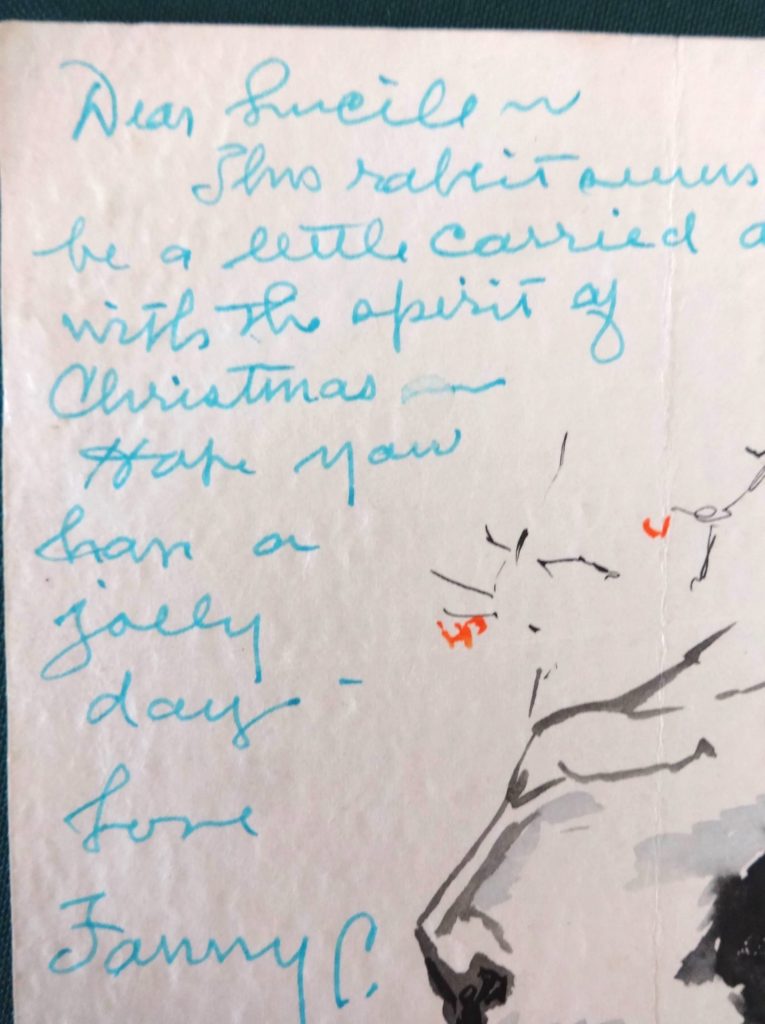 Dear Lucile ~
This rabbit seems
be a little carried a
with the spirit of
Christmas ~
Hope you
have a
jolly
day -
Love
Fanny C.